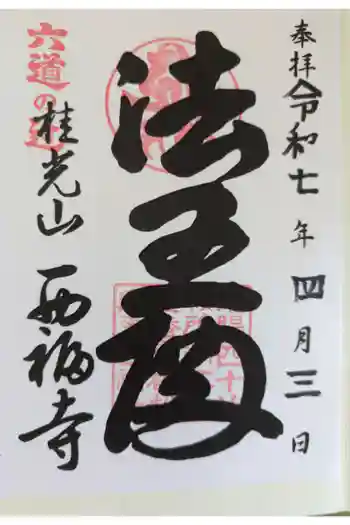 奉拝 令和七年四月三日
法王
六道の辻
桂光山 西福寺